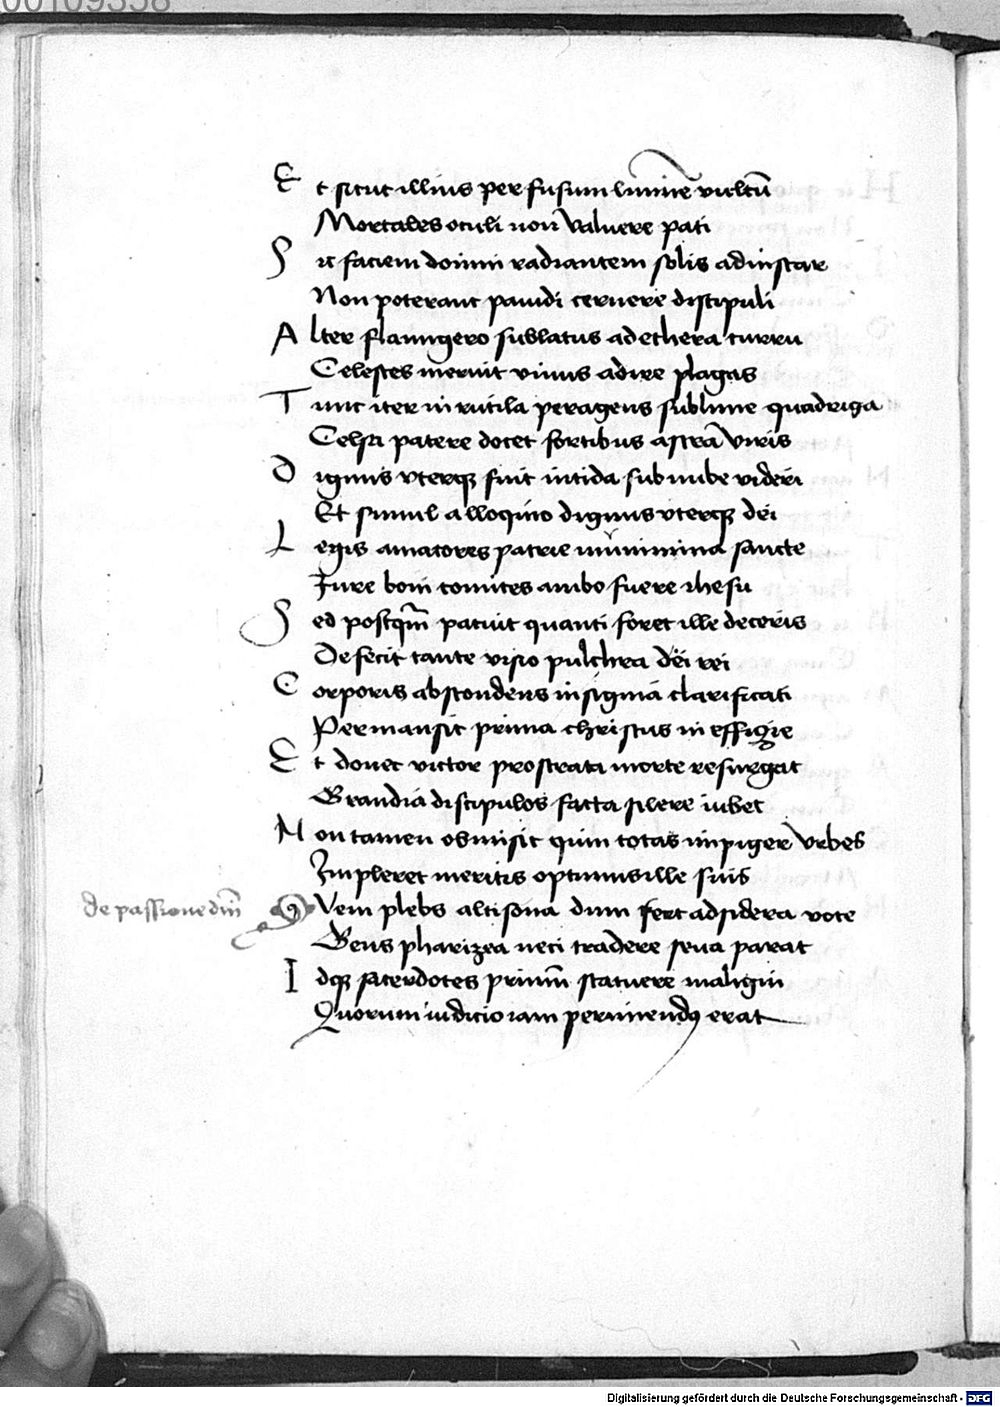 00109358
Et sicut illius perfusum lumine vultū
Mortales oculi non valuere pati
Sic faciem domini radiantem solis ad instar
Non poterant pauidi cernere discipuli
Alter flammigero sublatus ad ethera curru
Celestes meruit viuus adire plagas
Tunc iter in rutila peragens sublime quadriga
Celsa patere docet fortibus astra viris
Dignus vterqȝ fuit nitida sub nube videri
Et simul alloquio dignus vterqȝ dei
Legis amatores patrie munimina sancte
Jure boni comites ambo fuere ihesu
Sed postqm̄ patuit quanti foret ille decoris
Defecit tante visio pulchra dei rei
Corporis abscondens insignia clarificati
Permansit prima christus in effigie
Et donec victor prostrata morte resurgat
Grandia discipulos facta silere iubet
Non tamen obmisit quin totas impiger vrbes
Impleret meritis optimus ille suis
de passione dn̄i
Quem plebs altisona dum fert ad sidera voce
Gens pharizea neci tradere seua parat
Idqȝ sacerdotes primū statuere maligni
Quorum iudicio iam perimendꝰ erat
Digitalisierung gefördert durch die Deutsche Forschungsgemeinschaft - DFG